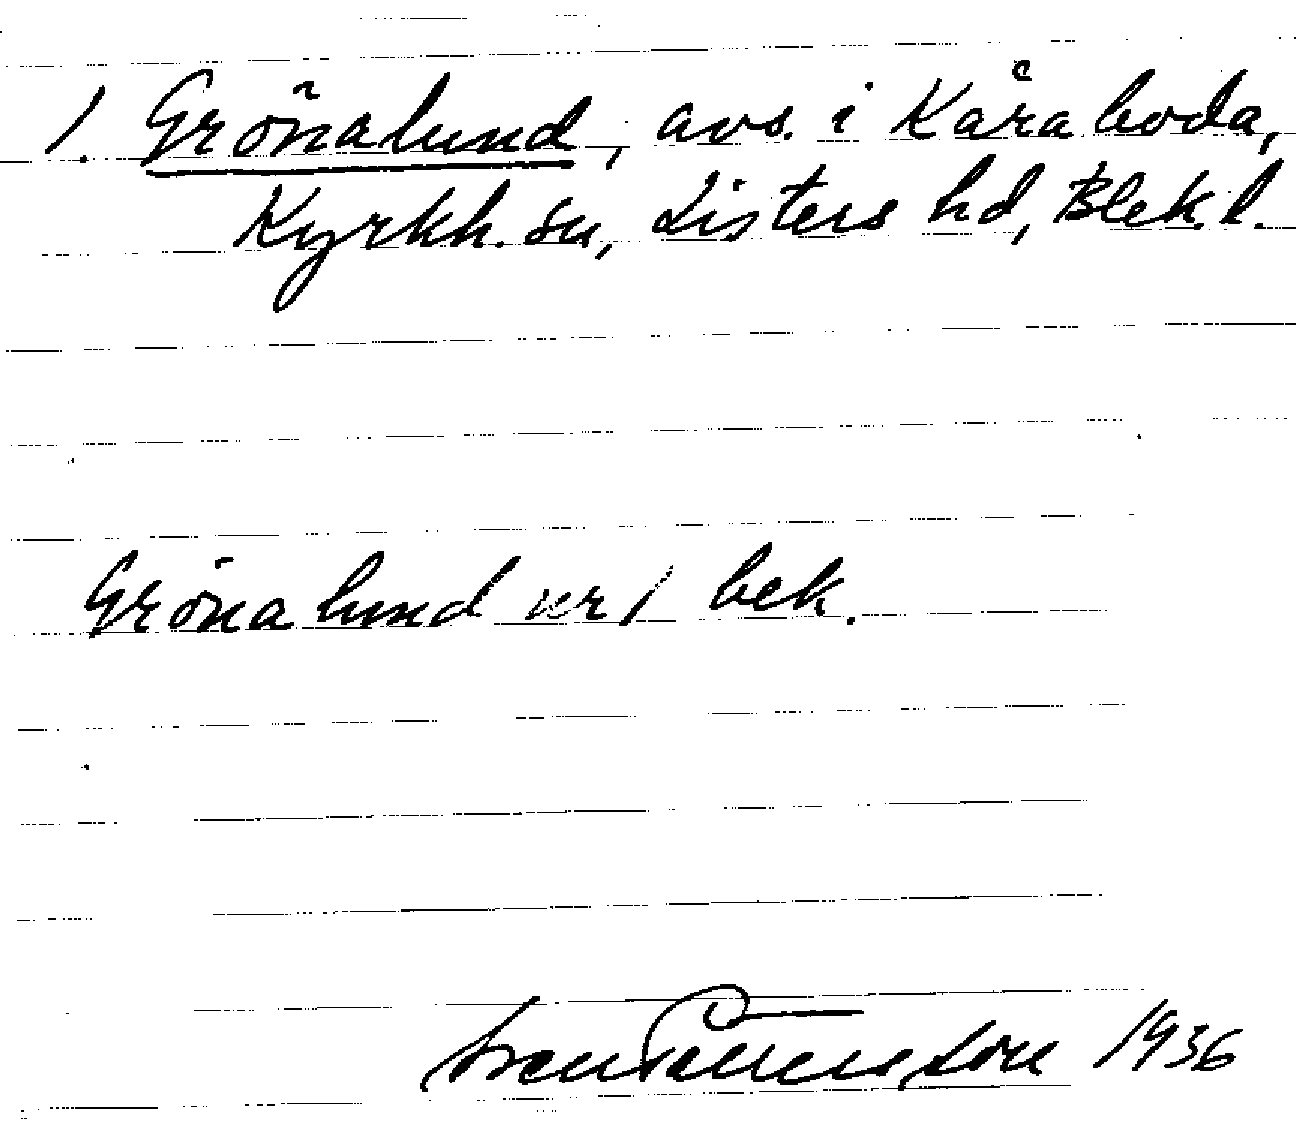 1. Grönalund, avs. i Kåraboda,
Kyrkh. sn, Listers hd, Blek. l.
Grönalund nr 1 bek.
Sven 1936